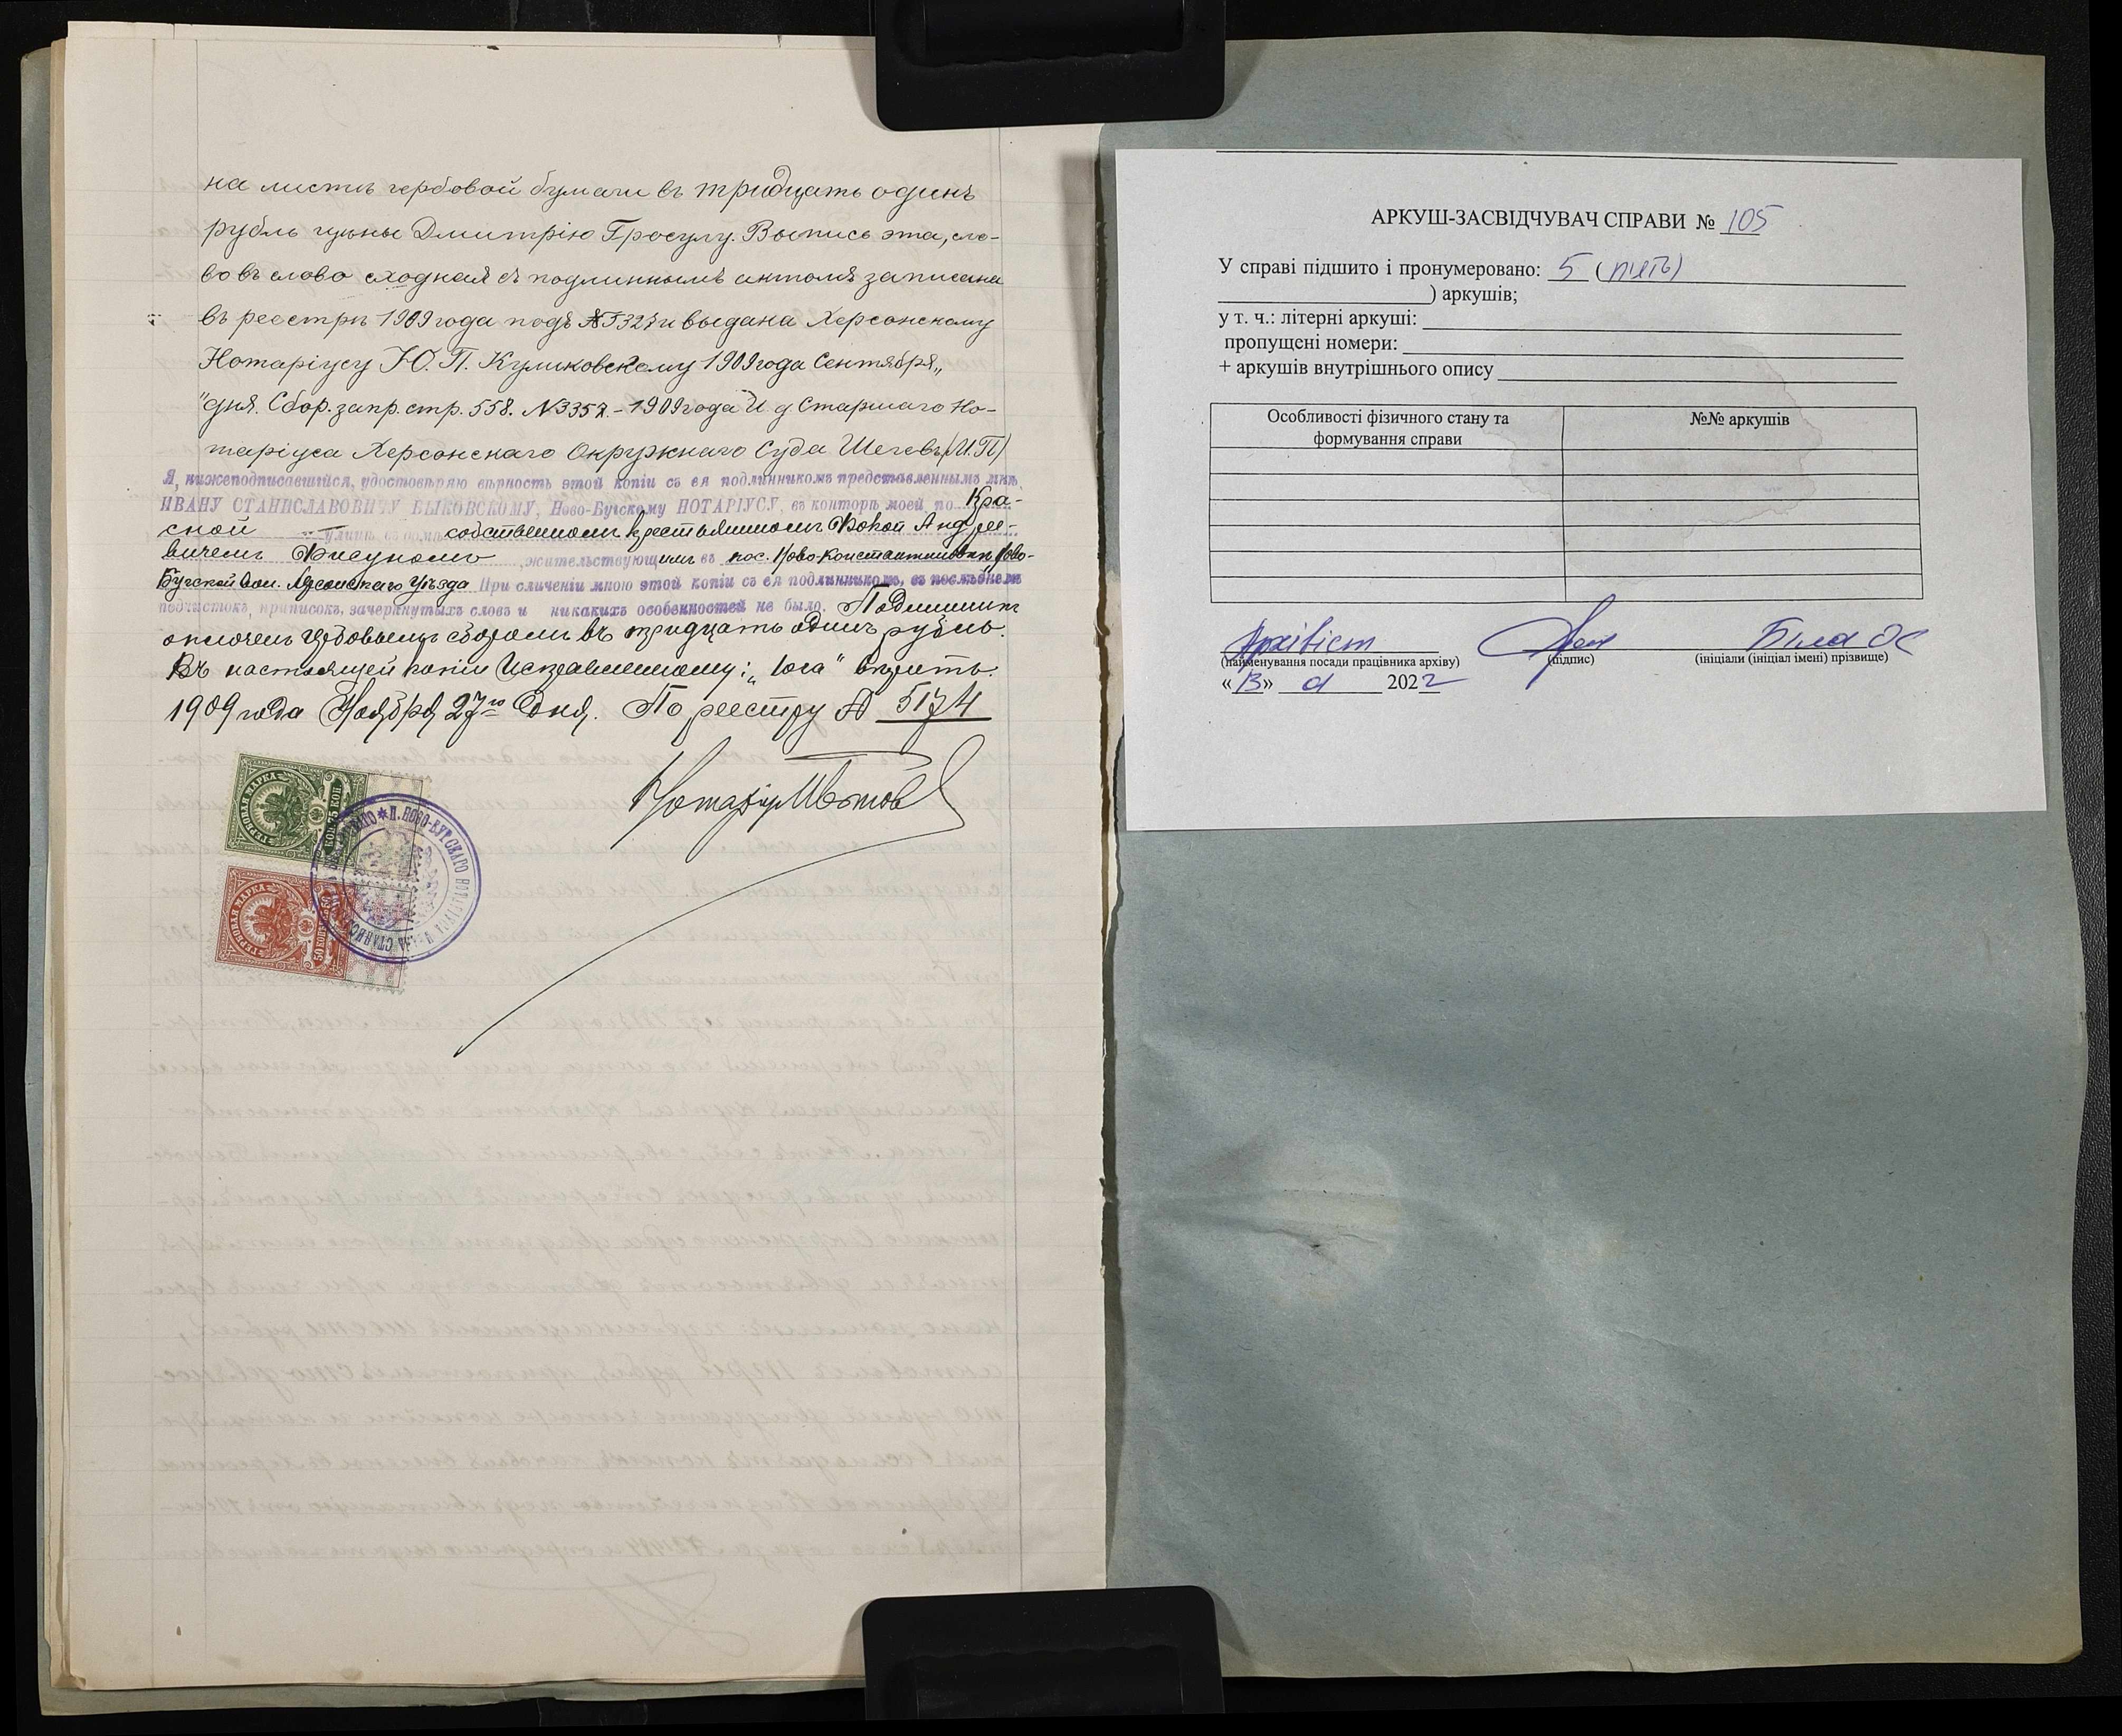 на листѣ гербовой бумаги въ тридцать одинъ
рубль цѣны Дмитрію Гросулу. Выпись эта, сло-
во въ слово сходная съ подлиннымъ актомъ записана
въ реестрѣ 1909 года подъ № и выдана Херсонскому
Нотаріусу Ю. П. Куликовскому 1909 года Сентября „
" дня. Сбор. запр. стр. 558. № 3357 - 1909 года И д Старшаго Но-
таріуса Херсонскаго Окружнаго Суда (М.П)
Я, нижеподписавшійся, удостовѣряю вѣрность этой копіи съ ея подлинникомъ представленнымъ мнѣ,
ИВАНУ СТАНИСЛАВОВИЧУ БЫКОВСКОМУ, Ново-Бугскому НОТАРІУСУ, въ конторѣ моей, по Кра-
сной улицѣ, въ домѣ собственномъ крестьяниномъ Фокой Андрее-
вичемъ, жительствующимъ въ пос. Ново-Константиновкѣ, Ново-
Бугской вол. Херсонскаго уѣзда При сличеніи мною этой копіи съ ея подлинникомъ, въ послѣднемъ
подчистокъ, приписокъ, зачеркнутыхъ словъ и никакихъ особенностей не было. Подлинникъ
оплоченъ гербовымъ сборомъ въ тридцать одинъ рубль.
Въ настоящей копіи исправленному: „юга" вѣрить.
1909 года Ноября 27го дня. По реестру № 5174
Нотаріусъ
ГЕРБОВАЯ МАРКА
75 КОП.
ГЕРБОВАЯ МАРКА
50 КОП.
Н. НОВО-БУГСКАГО НОТАРІУСА
АРКУШ-ЗАСВІДЧУВАЧ СПРАВИ № 105
У справі підшито і пронумеровано: 5 (п'ять)
) аркушів;
у т. ч.: літерні аркуші:
пропущені номери:
+ аркушів внутрішнього опису
Особливості фізичного стану та формування справи
№№ аркушів
Архівіст Біла ОС
(найменування посади працівника архіву) (підпис) (ініціали (ініціал імені) прізвище)
« » 2022